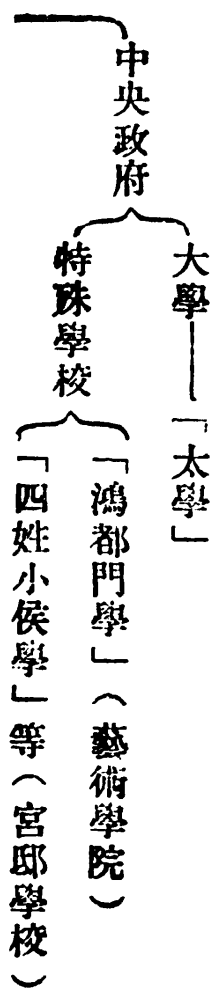 中央政府
大學——「太學」
特殊學校
「鴻都門學」（藝術學院）
「四姓小侯學」等（宮邸學校）